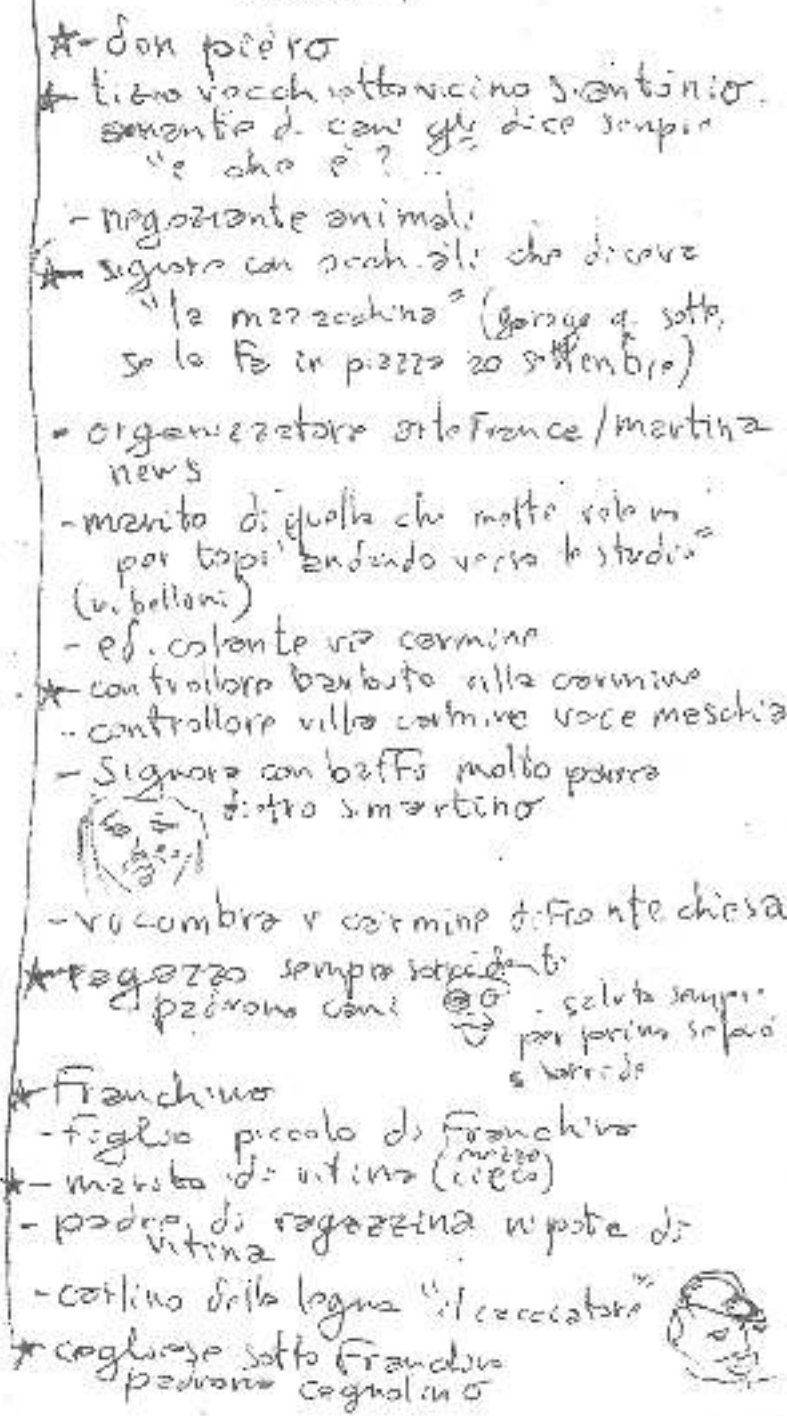 ★- don piero
★- tizio vecchiotto vicino s. antonio.
amante di cani gli dice sempre
"e che è?"
- negoziante animali
★- signore con occhiali che diceva
"la mazzachina" (garage q. sotto,
se la fa in piazza 20 settembre)
- organizzatore arteFranca/martina
news
- marito di quella che mette veleno
per topi "andando verso lo studio"
(v. belloni)
- ed. colante via carmine
★- controllore barbuto villa carmine
- controllore villa carmine voce meschia
- Signora con baffi molto
dietro s. martino
- vucumbrà v carmine di fronte chiesa
★- ragazzo sempre sorridente
padrone cani
- saluta sempre
per primo se può
e sorride
★- Franchino
- figlio piccolo di Franchino
★- marito di vitina (mezzo cieco)
- padre di ragazzina nipote di
vitina
- carlino della legna "il cacciatore"
★ cegliese sotto Franchino
padrone cagnolino